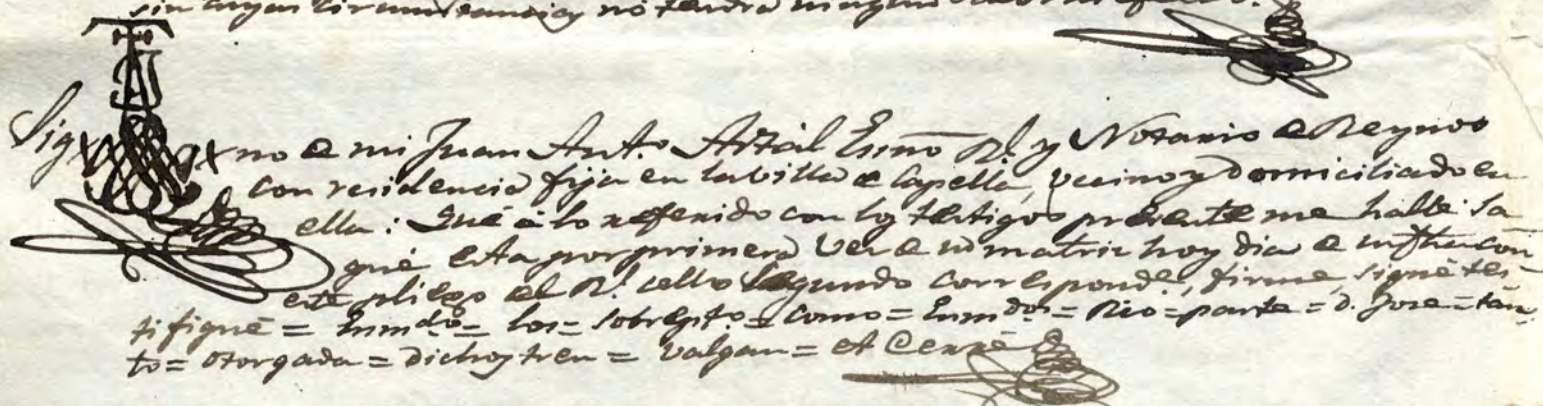 sin cuyas circunstancias no tendrá ninguno valor ni efecto.
Sig no de mi Juan Ant.º Artal Essno Rl. y Notario de Reynos
con residencia fija en la villa de Capella, vecino y domiciliado en
ella: Que á lo referido con los testigos presente me hallé sa
qué esta por primera vez de su matriz hoy dia de su fha con
este pliego del Rl. cello segundo correspond.e, firme, signé tes
tifiqué = Enmdo = los = sobrepto = como = Enmdos = Rio = parte = d. Jose = tan
to = otorgada = dichos tren = valgan = et Cerré